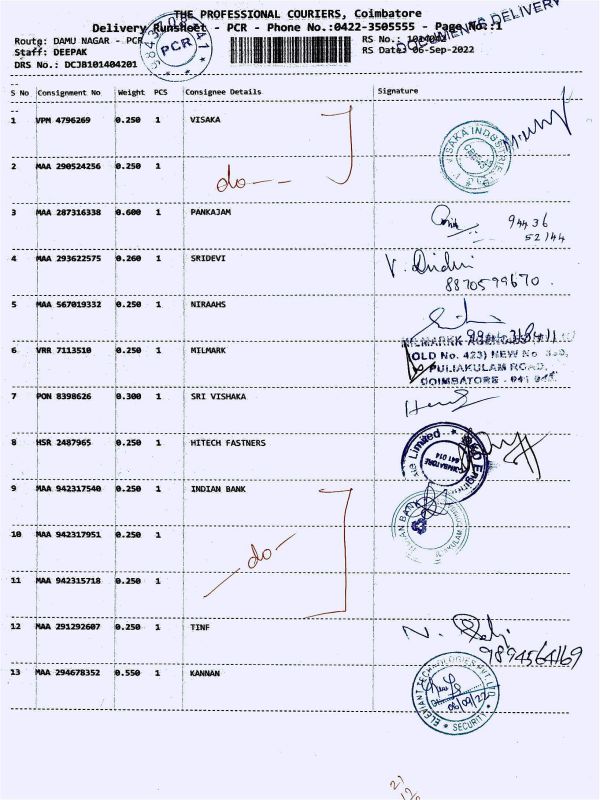 THE PROFESSIONAL COURIERS, Coimbatore
Delivery Runsheet - PCR - Phone No.:0422-3505555 - Page No.:1
Route: DAMU NAGAR - PCR
Staff: DEEPAK
RS Date: 06-Sep-2022
DRS No.: DCJB101404201
PCR
DOCUMENTS DELIVERY
S No Consignment No Weight PCS Consignee Details Signature
1 VPM 4796269 0.250 1 VISAKA
VISAKA INDUSTRIES
2 MAA 290524256 0.250 1
do
3 MAA 287316338 0.600 1 PANKAJAM
94436
52144
4 MAA 293622575 0.260 1 SRIDEVI
8870599670.
5 MAA 567019332 0.250 1 NIRAAHS
6 VRR 7113510 0.250 1 MILMARK
(OLD No. 423) NEW No
PULIAKULAM ROAD,
COIMBATORE
7 PON 8398626 0.300 1 SRI VISHAKA
8 HSR 2487965 0.250 1 HITECH FASTNERS
COIMBATORE
641 014
Limited
9 MAA 942317540 0.250 1 INDIAN BANK
INDIAN BANK
10 MAA 942317951 0.250 1
do
11 MAA 942315718 0.250 1
12 MAA 291292607 0.250 1 TINF
9894564169
13 MAA 294678352 0.550 1 KANNAN
ELEVIANT TECHNOLOGIES PVT LTD
06/09/22
SECURITY